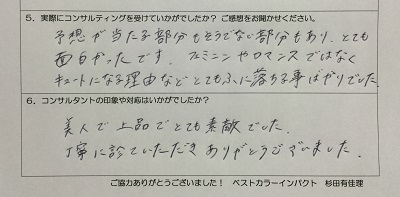 5. 実際にコンサルティングを受けていかがでしたか? ご感想をお聞かせください。
予想が当たる部分もそうでない部分もあり、とても
面白かったです。フェミニンやロマンスではなく
キュートになる理由などとてもふに落ちる事ばかりでした
6. コンサルタントの印象や対応はいかがでしたか?
美人で上品でとても素敵でした。
丁寧に診ていただきありがとうございました。
ご協力ありがとうございました! ベストカラーインパクト 杉田有佳理